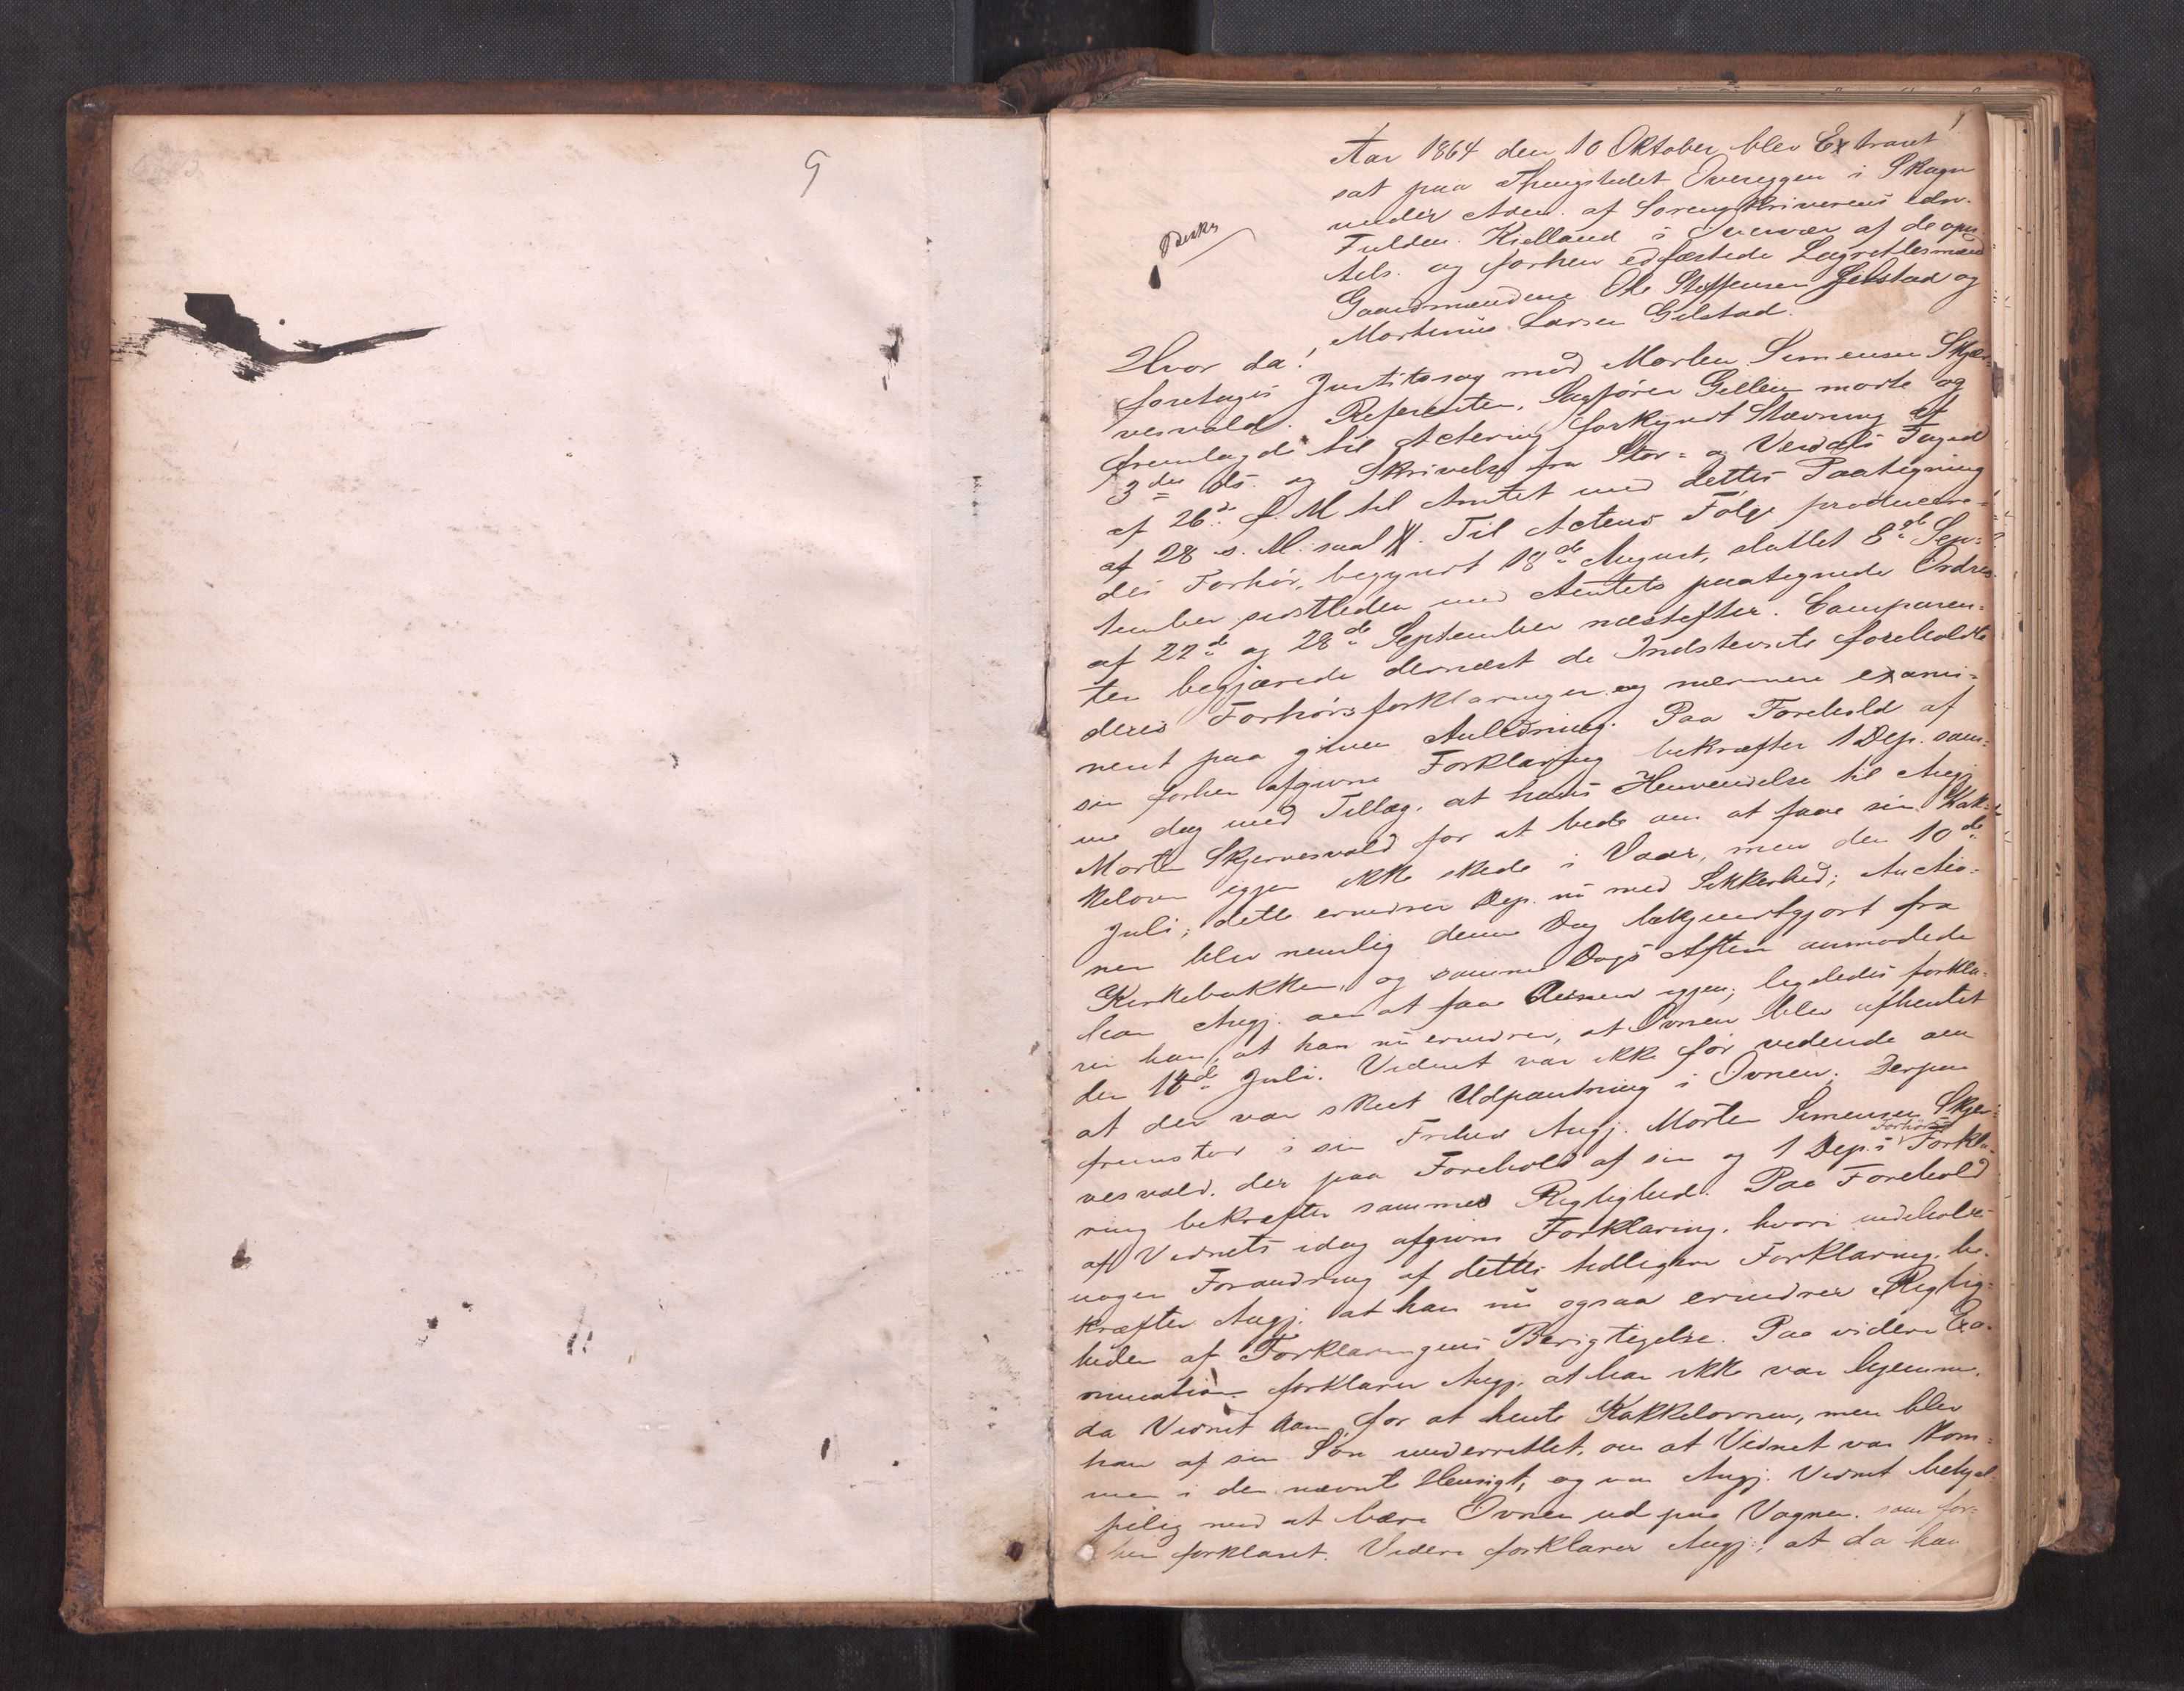 9
1
Aar 1864 den 10 Oktober blev Extraret
sat paa Thingstedet Overeggen i Skogn
under Adm. af Sorenskriverens edsv.
Fuldm. Kielland i Overvær af de opn
Beskr
Gaardmændene Ole Steffensen Gilstad og
Mortinus Larsen Gilstad.
tels. og forhen edfæstede Lagrettesmænd
Hvor da!
foretages Justitssag mod Morten Simensen Skjær-
vesvold. Referenten, Sagfører Gellein mødte og
fremlagde til Actering forkyndt Stævning af
3die ds. og Skrivelse fra Stør- og Verdals Fogd
af 26de f. M til Amtet med dettes Paategning
af 28 s. M. saal. Til Actens Følge producere-
des Forhør, begyndt 18de August, sluttet 8de Sep-
tember sidstleden med Amtets paategnede Ordres
af 22de og 28de September næstefter. Comparen-
ten begjærede dernæst de Indstevnte foreholdte
deres Forhørsforklaringer og nærmere exami-
neret paa given Anledning. Paa Forehold af
sin forhen afgivne Forklaring bekræfter 1 Dep. sam-
me dog med Tillæg, at hans Henvendelse til Angj
Morten Skjervesvold for at bede om at faae sin Kak-
kelovn igjen ikke skede i Vaar, men den 10de
Juli; dette erindrer Dep. nu med Sikkerhed; Auctio-
nen blev nemlig denne Dag bekjendtgjort fra
Kirkebakken, og samme Dags Aften anmodede
han Angj. om at faae Ovnen igjen; ligeledes forkla-
rer han, at han nu erindrer, at Ovnen blev afhentet
den 18de Juli. Vidnet var ikke før vidende om
at der var skeet Udpantning i Ovnen. Derpaa
fremstod i sin Frihed Angj. Morten Simensen Skjer-
vesvold, der paa Forehold af sin og 1 Dep.s Forhørs Forkla-
ring bekræfter sammes Rigtighed. Paa Forehold
af Vidnets idag afgivne Forklaring, hvori indeholdes
nogen Forandring af dettes tidligere Forklaring, be-
kræfter Angj. at han nu ogsaa erindrer Rigtig-
heden af Forklaringens Berigtigelse. Paa videre Exa-
mination forklarer Angj. at han ikke var hjemme,
da Vidnet kom for at hente Kakkelovnen, men blev
han af sin Søn underrettet, om at Vidnet var kom-
men i den nævnte Hensigt, og var Angj. Vidnet behjel-
pelig med at bære Ovnen ud paa Vognen, som for-
hen forklaret. Videre forklarer Angj., at da han